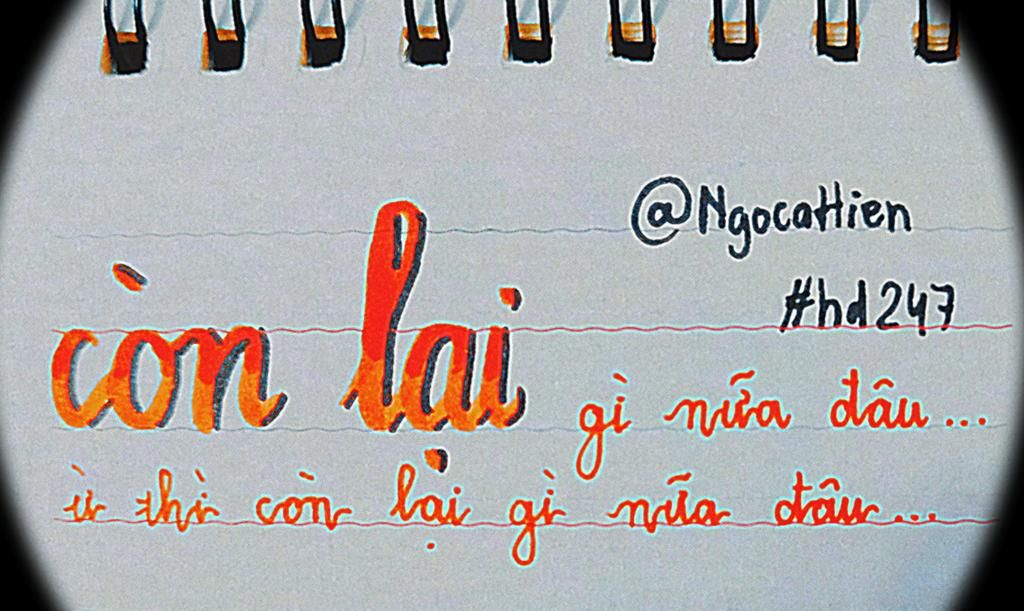 @NgocaHien
#hd247
còn lại gì nữa đâu...
ừ thì còn lại gì nữa đâu...